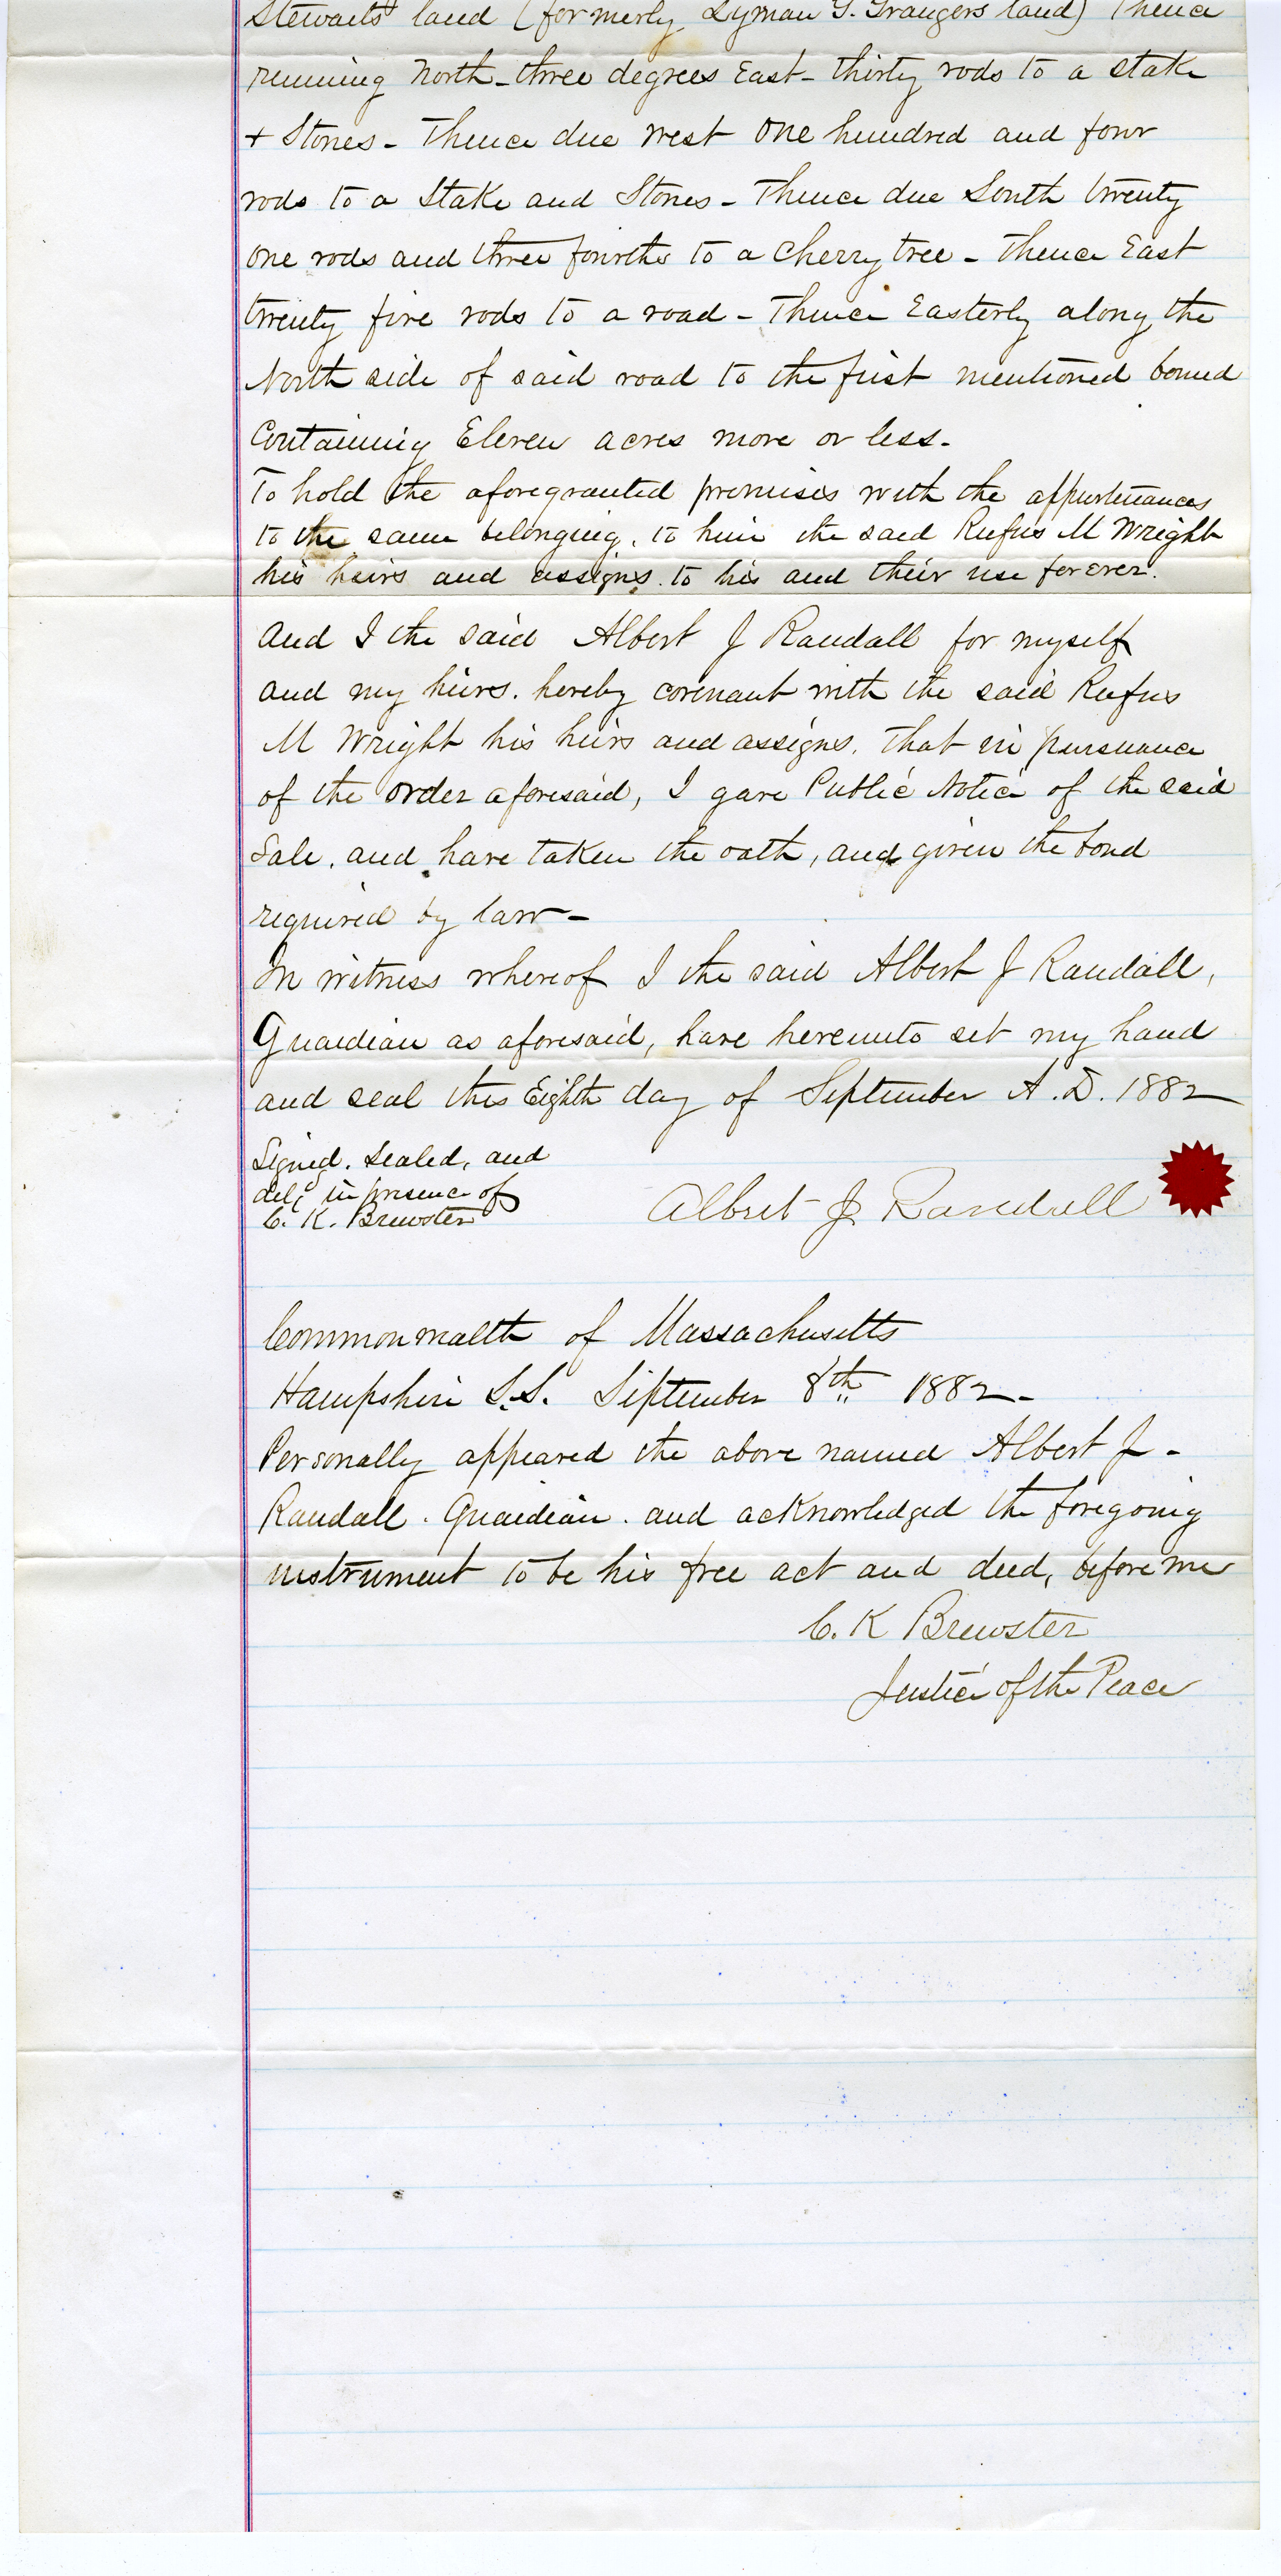 Stewarts land (formerly Lyman G. Grangers land) Thence
running North - three degrees East - thirty rods to a stake
+ Stones - Thence due West One hundred and four
rods to a Stake and Stones - Thence due South twenty
one rods and three fourths to a Cherry tree - thence East
twenty five rods to a road - Thence Easterly along the
North side of said road to the first mentioned bound
Containing Eleven acres more or less.
To hold the aforegranted premises with the appurtenances
to the same belonging, to him the said Rufus M Wright
his heirs and assigns. to his and their use forever.
And I the said Albert J Randall for myself
and my heirs. hereby covenant with the said Rufus
M Wright his heirs and assigns, that in pursuance
of the order aforesaid, I gave Public Notice of the said
Sale, and have taken the oath, and given the bond
required by law -
In witness whereof I the said Albert J Randall,
Guardian as aforesaid, have hereunto set my hand
and seal this Eighth day of September A.D. 1882
Signed. Sealed, and
deld in presence of
C. K. Brewster
Albert J Randall
Commonwealth of Massachusetts
Hampshire S.S. September 8th 1882 -
Personally appeared the above named Albert J -
Randall. Guardian. and acknowledged the foregoing
instrument to be his free act and deed, before me
C. K Brewster
Justice of the Peace